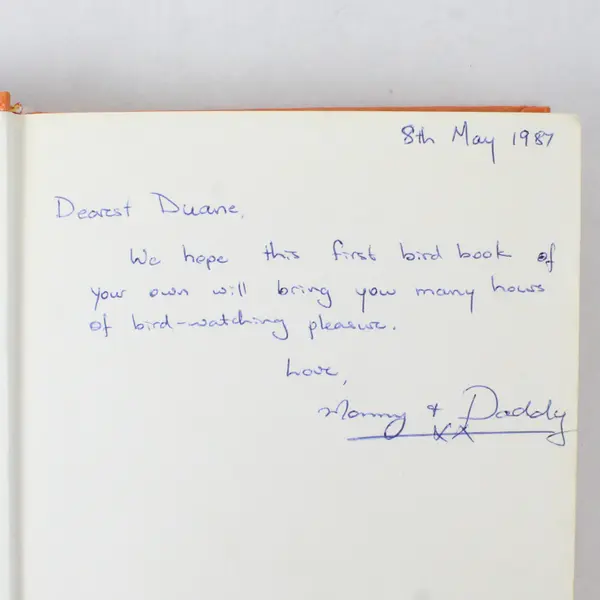 8th May 1987
Dearest Duane,
We hope this first bird book of
your own will bring you many hours
of bird-watching pleasure.
Love,
Mommy & Daddy
XX